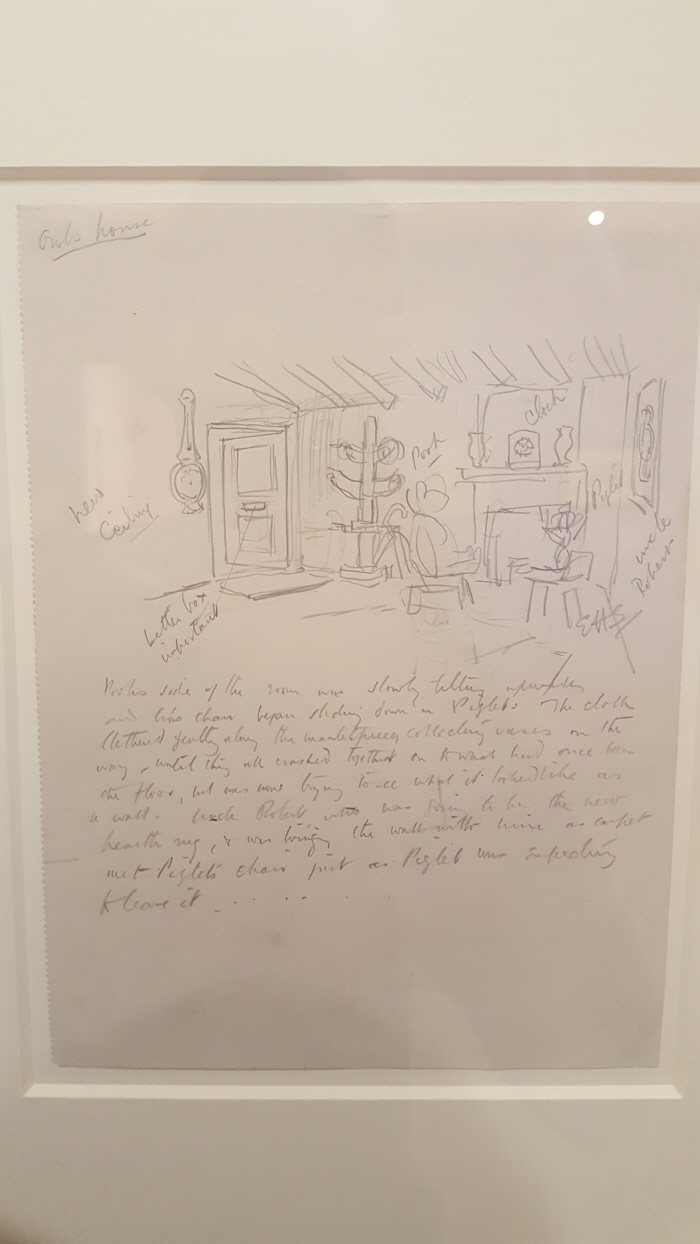 Owls house
clock
Pooh
Piglet
new
Ceiling
uncle
Robert
letter box
important
EHS
Poohs side of the room was slowly tilting upwards
and his chair began sliding down on Piglets. The clock
slithered gently along the mantelpiece, collecting vases on the
way, until they all crashed together on to what had once been
the floor, but was now trying to see what it looked like as
a wall. Uncle Robert who was going to be the new
hearth rug, & was bringing the wall with him as carpet
met Piglets chair just as Piglet was expecting
to leave it . . . . .